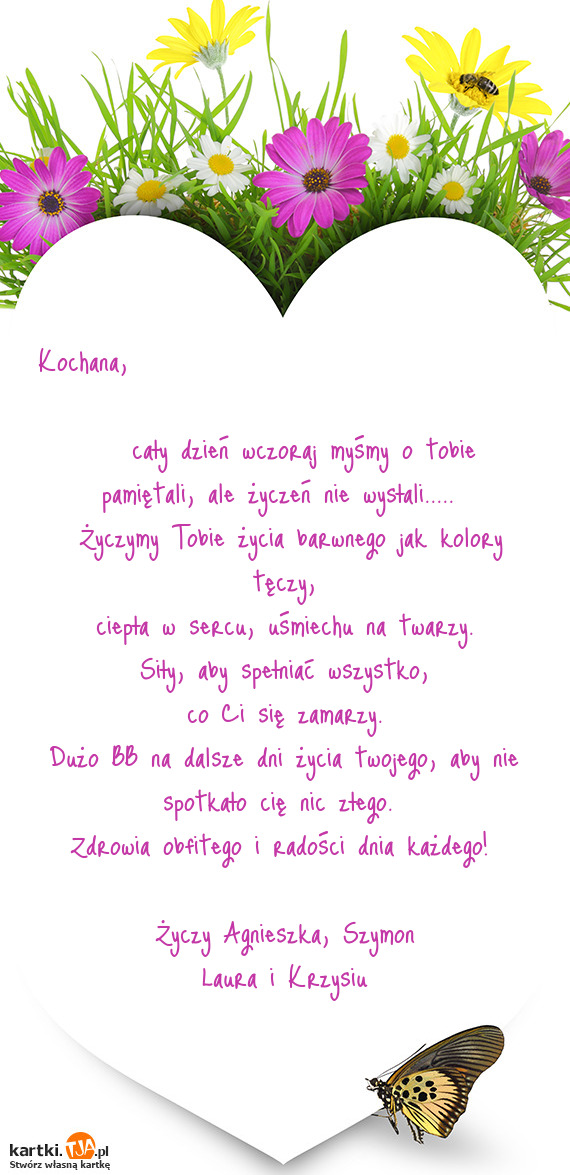 Kochana,
cały dzień wczoraj myśmy o tobie
pamiętali, ale życzeń nie wysłali.....
Życzymy Tobie życia barwnego jak kolory
tęczy,
ciepła w sercu, uśmiechu na twarzy.
Siły, aby spełniać wszystko,
co Ci się zamarzy.
Dużo BB na dalsze dni życia twojego, aby nie
spotkało cię nic złego.
Zdrowia obfitego i radości dnia każdego!
Życzy Agnieszka, Szymon
Laura i Krzysiu
kartki.TJA.pl
Stwórz własną kartkę